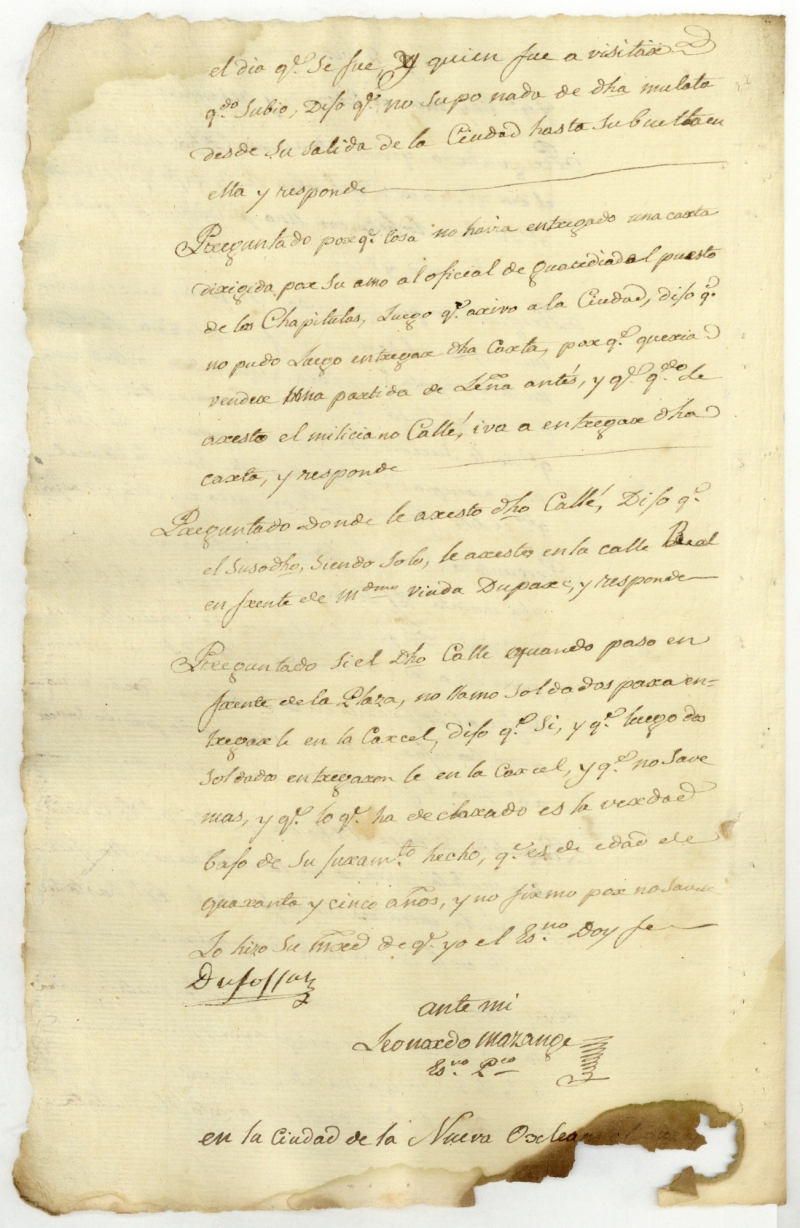 el dia q.e se fue, y quien fue a visitar
q.do subio, Dijo q.e no supo nada de dha mulata
desde su salida de la Ciudad hasta su buelta en
ella y responde
Preguntado porq.e Cosa no havia entregado una carta
dirigida por su amo al oficial de guardia del puesto
de los Chapitulas, luego q.e arivo a la Ciudad, dijo q.e
no pudo luego entregar dha Carta, por q.e queria
vender una partida de Leña antes, y q.e q.do le
aresto el miliciano Callé, iva a entregar dha
carta, y responde
Preguntado donde le aresto dho Callé, Dijo q.e
el Susodho, siendo solo, le aresto en la calle Real
en frente de M.dme viuda Dupare, y responde
Preguntado si el Dho Calle quando paso en
frente de la Plaza, no llamo soldados para en=
tregarle en la Carcel, dijo q.e Si, y q.e luego dos
Soldados entregaron le en la carcel, y q.e no save
mas, y q.e lo q.e ha declarado es la verdad
bajo de su juram.to hecho, q.e es de edad de
quaranta y cinco años, y no firmo por no saver
Lo hizo su mrced de q.e yo el Es.no Doy fe
Dufossat
ante mi
Leonardo Mazange
Es.no P.co
en la Ciudad de la Nueva Orleans